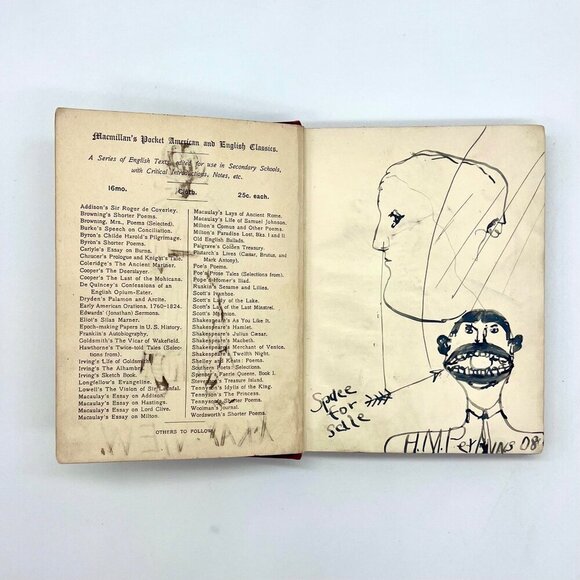 Macmillan's Pocket American and English Classics.
A Series of English Texts, edited for use in Secondary Schools,
with Critical Introductions, Notes, etc.
16mo. Cloth. 25c. each.
Addison's Sir Roger de Coverley.
Browning's Shorter Poems.
Browning, Mrs., Poems (Selected).
Burke's Speech on Conciliation.
Byron's Childe Harold's Pilgrimage.
Byron's Shorter Poems.
Carlyle's Essay on Burns.
Chaucer's Prologue and Knight's Tale.
Coleridge's The Ancient Mariner.
Cooper's The Deerslayer.
Cooper's The Last of the Mohicans.
De Quincey's Confessions of an
English Opium-Eater.
Dryden's Palamon and Arcite.
Early American Orations, 1760-1824.
Edwards' (Jonathan) Sermons.
Eliot's Silas Marner.
Epoch-making Papers in U. S. History.
Franklin's Autobiography.
Goldsmith's The Vicar of Wakefield.
Hawthorne's Twice-told Tales (Selec-
tions from).
Irving's Life of Goldsmith.
Irving's The Alhambra.
Irving's Sketch Book.
Longfellow's Evangeline.
Lowell's The Vision of Sir Launfal.
Macaulay's Essay on Addison.
Macaulay's Essay on Hastings.
Macaulay's Essay on Lord Clive.
Macaulay's Essay on Milton.
Macaulay's Lays of Ancient Rome.
Macaulay's Life of Samuel Johnson.
Milton's Comus and Other Poems.
Milton's Paradise Lost, Bks. I and II.
Old English Ballads.
Palgrave's Golden Treasury.
Plutarch's Lives (Cæsar, Brutus, and
Mark Antony).
Poe's Poems.
Poe's Prose Tales (Selections from).
Pope's Homer's Iliad.
Ruskin's Sesame and Lilies.
Scott's Ivanhoe.
Scott's Lady of the Lake.
Scott's Lay of the Last Minstrel.
Scott's Marmion.
Shakespeare's As You Like It.
Shakespeare's Hamlet.
Shakespeare's Julius Cæsar.
Shakespeare's Macbeth.
Shakespeare's Merchant of Venice.
Shakespeare's Twelfth Night.
Shelley and Keats: Poems.
Southern Poets: Selections.
Spenser's Faerie Queene, Book I.
Stevenson's Treasure Island.
Tennyson's Idylls of the King.
Tennyson's The Princess.
Tennyson's Shorter Poems.
Woolman's Journal.
Wordsworth's Shorter Poems.
OTHERS TO FOLLOW.
Space
for
sale
H.M. Perkins 08